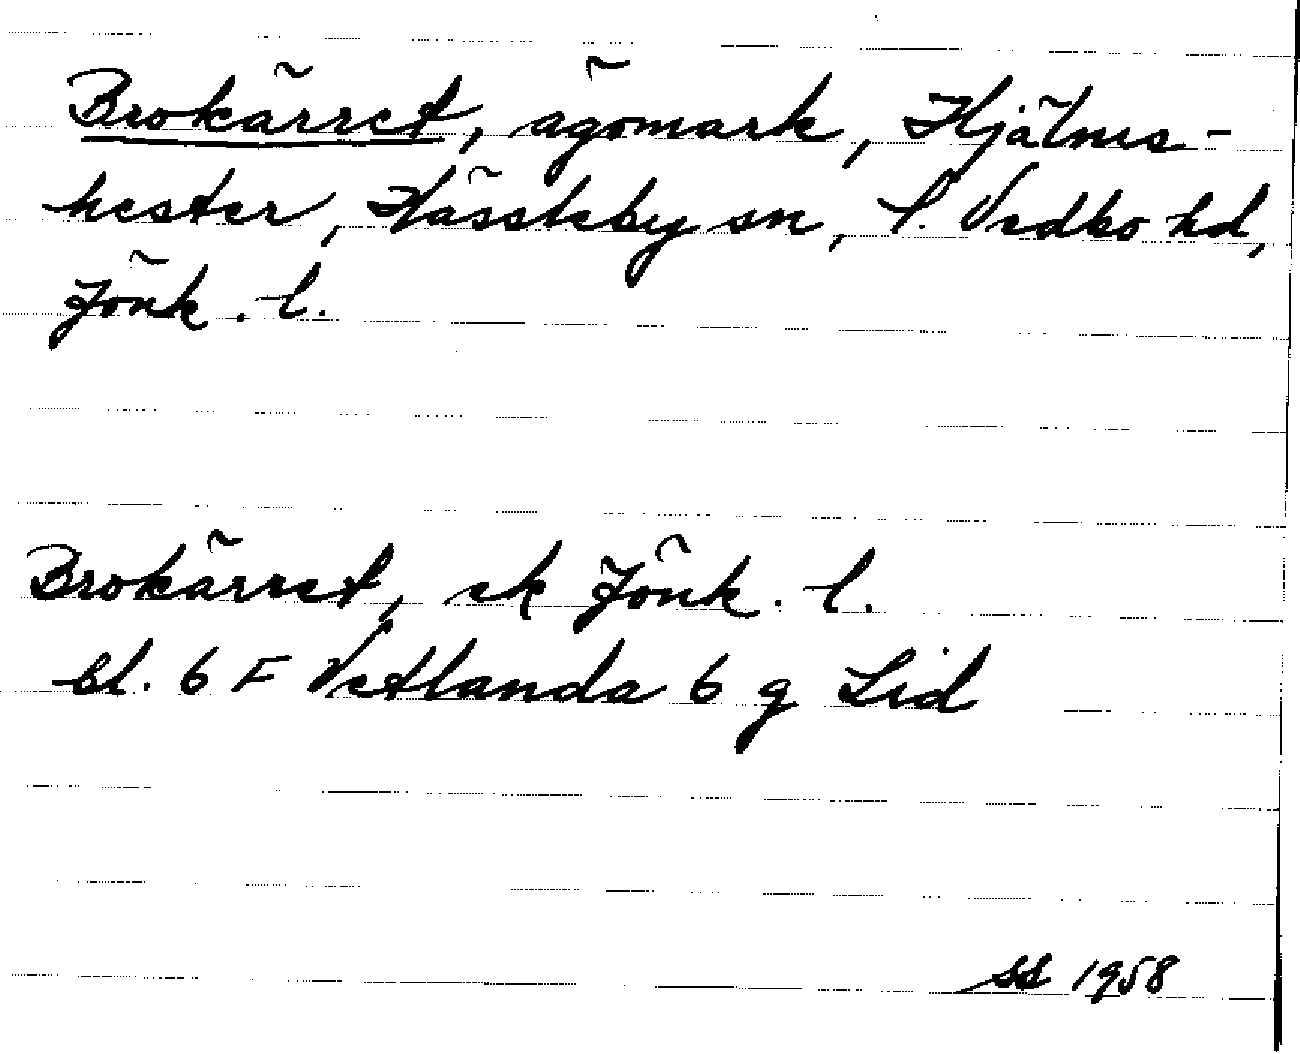 Brokärret, ägomark, Hjälms-
hester, Hässleby sn, S. Vedbo hd,
Jönk. l.
Brokärret, ek Jönk. l.
bl. 6 F Vetlanda 6 g Lid
SS 1958